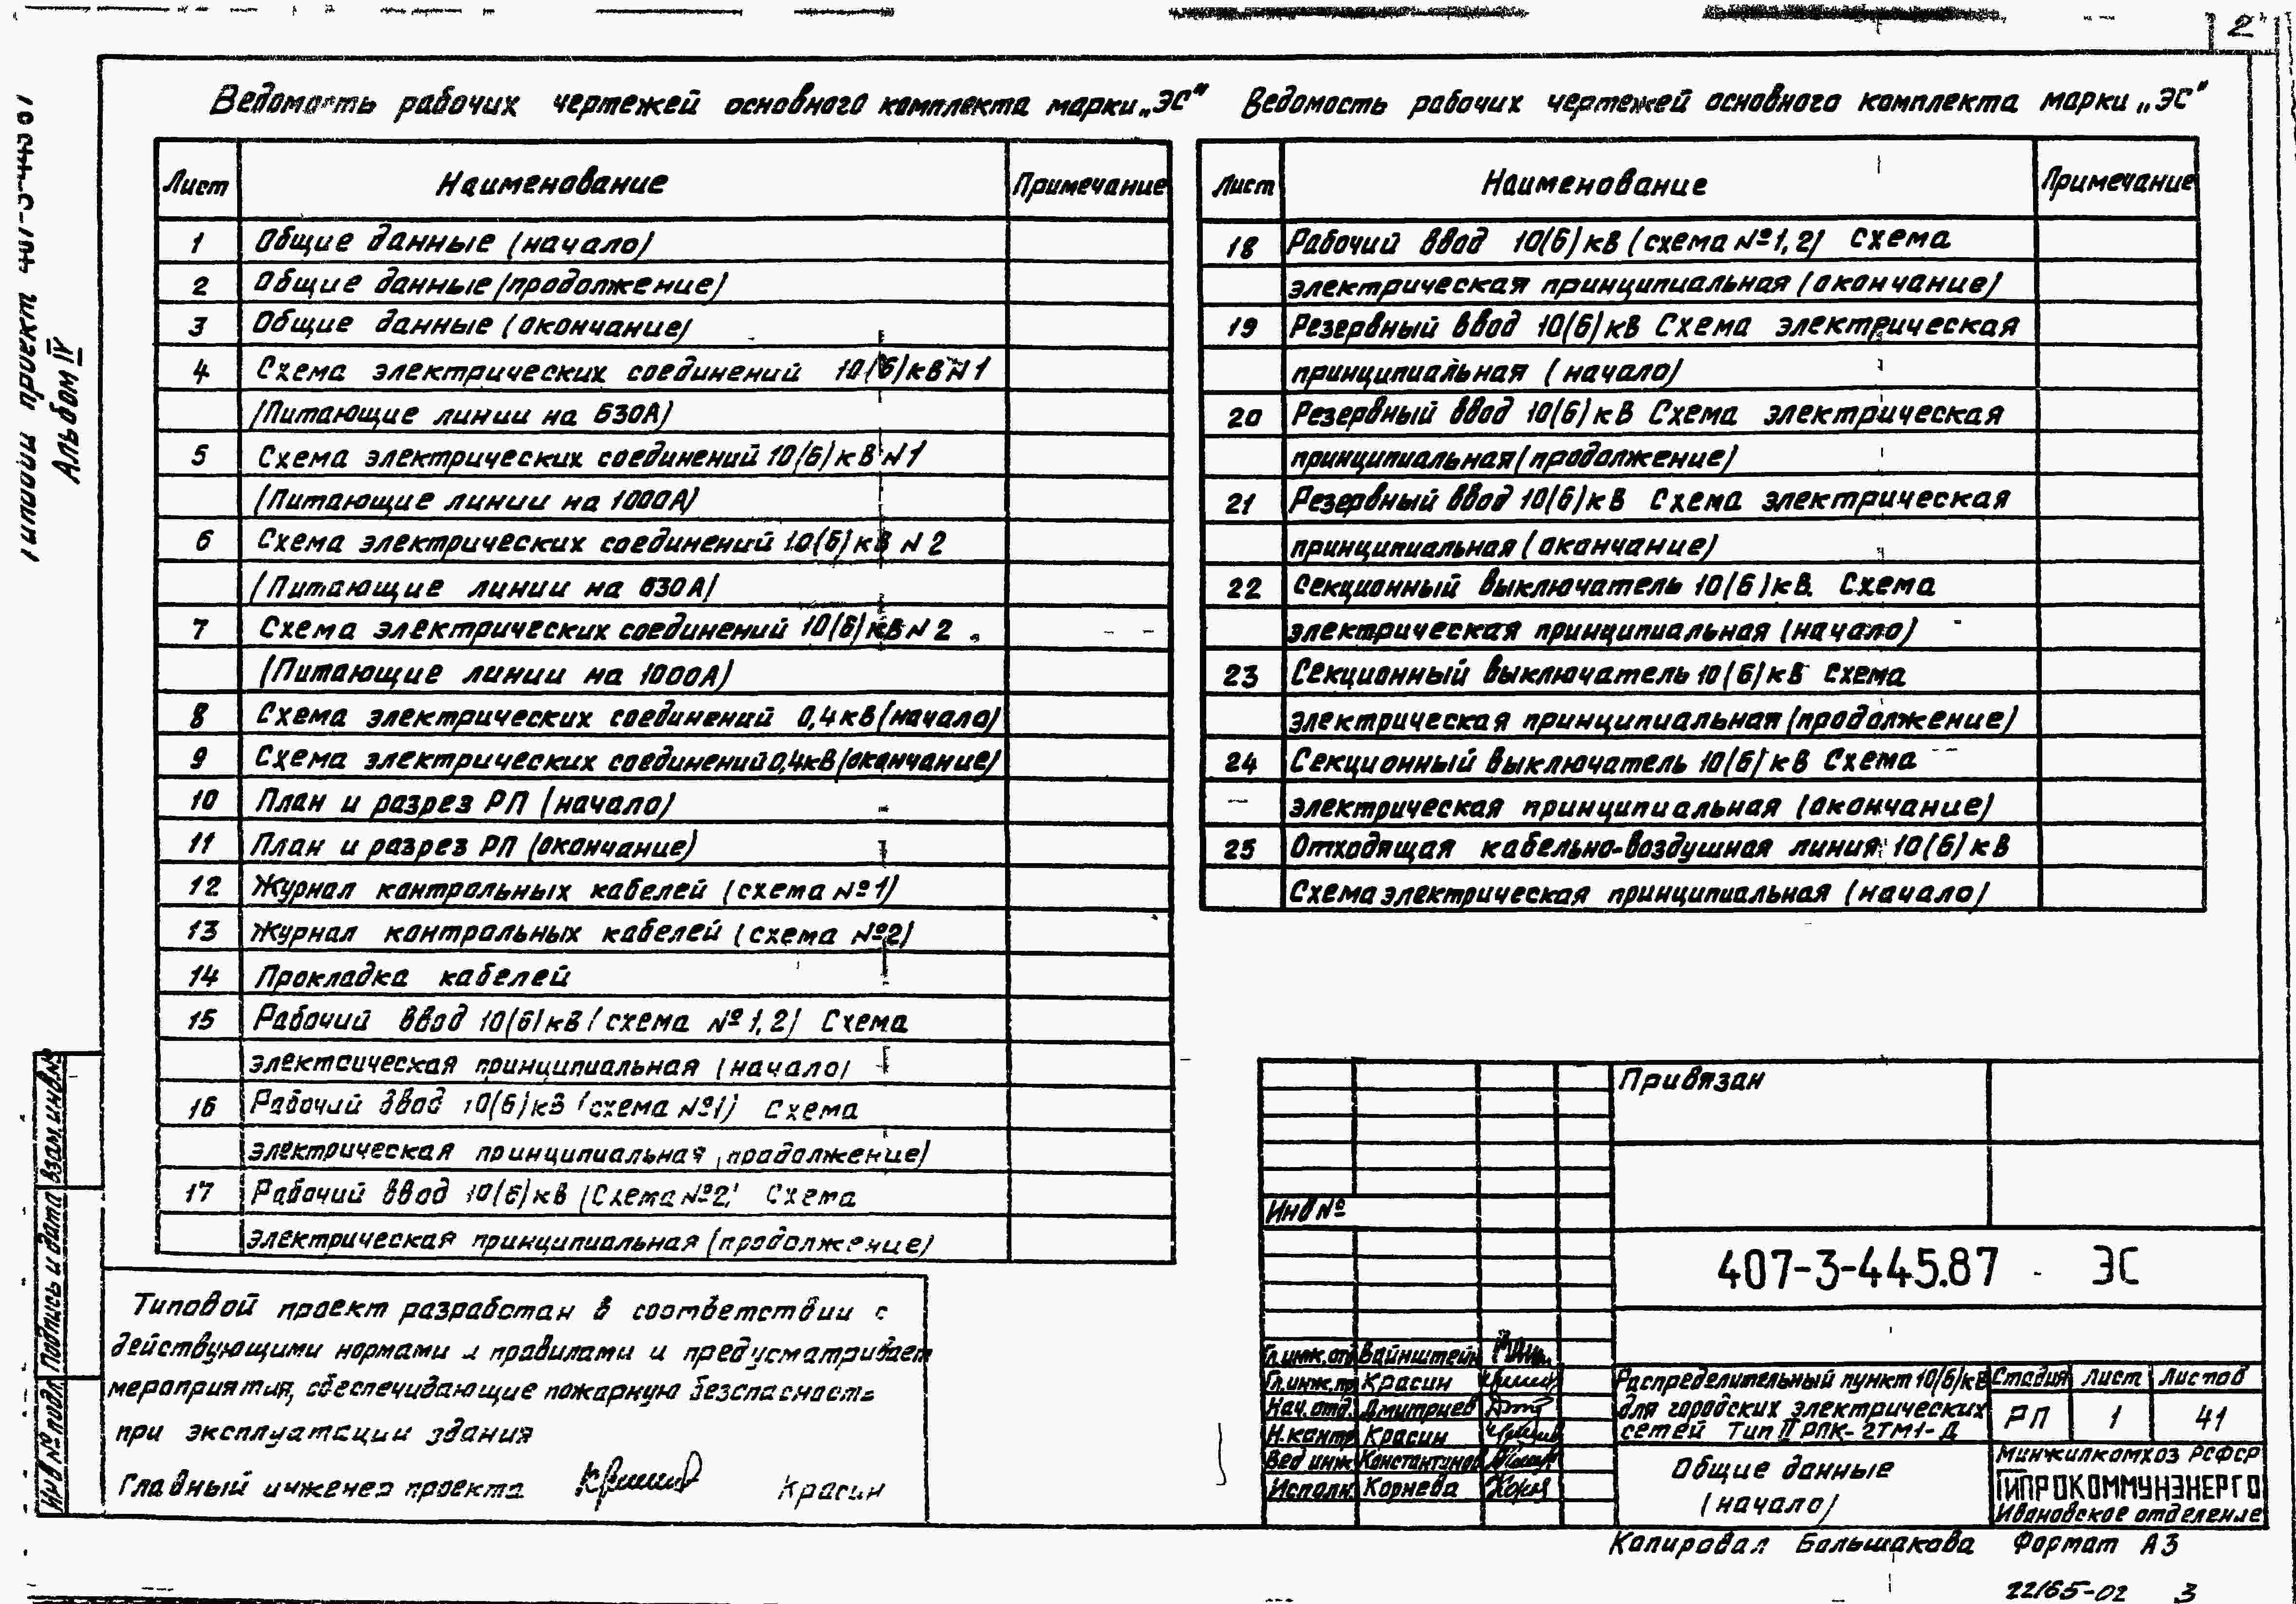 2
Типовой проект 407-3-445.87
Альбом IV
Ведомость рабочих чертежей основного комплекта марки „ЭС"
Лист Наименование Примечание
1 Общие данные (начало)
2 Общие данные (продолжение)
3 Общие данные (окончание)
4 Схема электрических соединений 10(6)кВ N1
(Питающие линии на 630А)
5 Схема электрических соединений 10(6)кВ N1
(Питающие линии на 1000А)
6 Схема электрических соединений 10(6)кВ N2
(Питающие линии на 630А)
7 Схема электрических соединений 10(6)кВ N2
(Питающие линии на 1000А)
8 Схема электрических соединений 0,4кВ (начало)
9 Схема электрических соединений 0,4кВ (окончание)
10 План и разрез РП (начало)
11 План и разрез РП (окончание)
12 Журнал контрольных кабелей (схема №1)
13 Журнал контрольных кабелей (схема №2)
14 Прокладка кабелей
15 Рабочий ввод 10(6)кВ (схема №1,2) Схема
электрическая принципиальная (начало)
16 Рабочий ввод 10(6)кВ (схема №1) Схема
электрическая принципиальная (продолжение)
17 Рабочий ввод 10(6)кВ (Схема №2) Схема
электрическая принципиальная (продолжение)
Ведомость рабочих чертежей основного комплекта марки „ЭС"
Лист Наименование Примечание
18 Рабочий ввод 10(6)кВ (схема №1,2) Схема
электрическая принципиальная (окончание)
19 Резервный ввод 10(6)кВ Схема электрическая
принципиальная (начало)
20 Резервный ввод 10(6)кВ Схема электрическая
принципиальная (продолжение)
21 Резервный ввод 10(6)кВ Схема электрическая
принципиальная (окончание)
22 Секционный выключатель 10(6)кВ. Схема
электрическая принципиальная (начало)
23 Секционный выключатель 10(6)кВ Схема
электрическая принципиальная (продолжение)
24 Секционный выключатель 10(6)кВ Схема
электрическая принципиальная (окончание)
25 Отходящая кабельно-воздушная линия 10(6)кВ
Схема электрическая принципиальная (начало)
Типовой проект разработан в соответствии с
действующими нормами и правилами и предусматривает
мероприятия, обеспечивающие пожарную безопасность
при эксплуатации здания
Главный инженер проекта Красин
Взам. инв. №
Подпись и дата
Инв № подл
Привязан
Инв №
407-3-445.87 ЭС
Гл. инж. отд Вайнштейн
Гл. инж. пр Красин
Нач. отд. Дмитриев
Н. контр Красин
Вед инж Константинов
Исполн. Корнева
Распределительный пункт 10(6)кВ
для городских электрических
сетей Тип II РПК-2ТМ1-Д
Стадия Лист Листов
РП 1 41
Общие данные
(начало)
Минжилкомхоз РСФСР
ГИПРОКОММУНЭНЕРГО
Ивановское отделение
Копировал Большакова Формат А3
22165-02 3